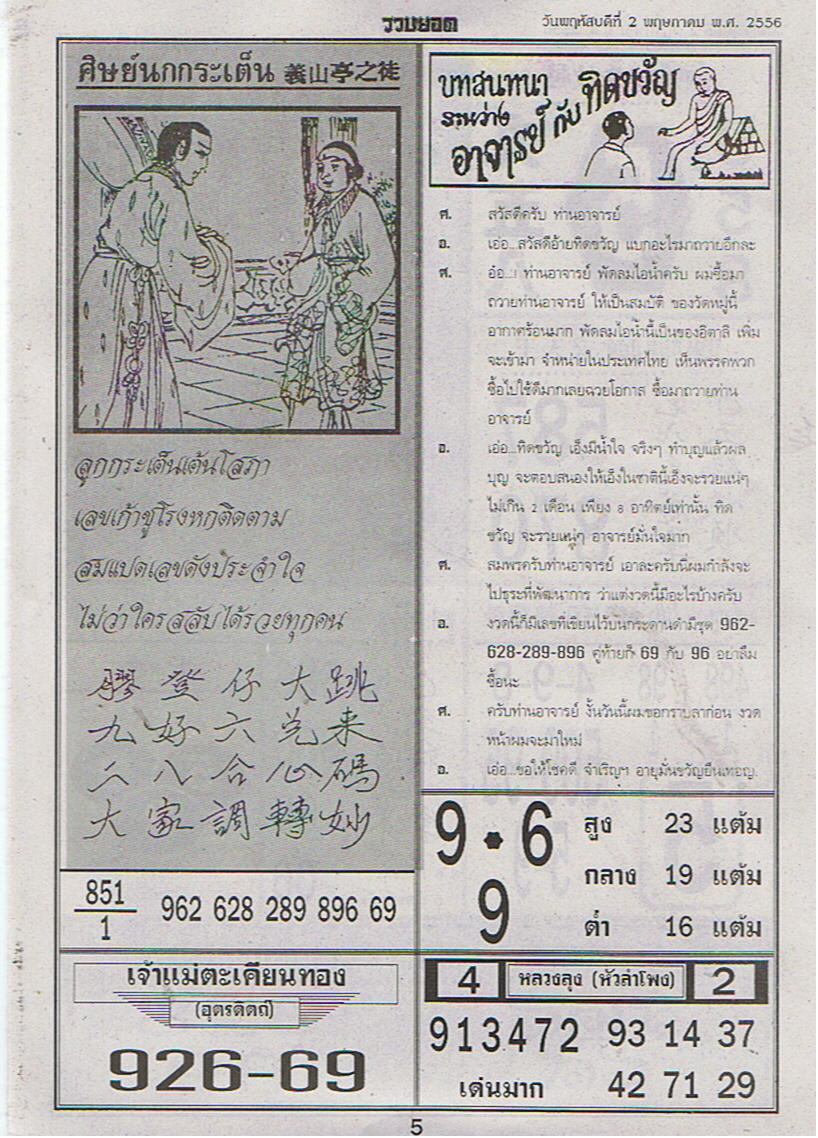 รวบยอด
วันพฤหัสบดีที่ 2 พฤษภาคม พ.ศ. 2556
ศิษย์นกกระเต็น 義山亭之徒
ลูกกระเด็นเต้นโสภา
เลขเก้าชูโรงหกติดตาม
สมแปดเลขดังประจำใจ
ไม่ว่าใครสลับได้รวยทุกคน
膠登仔大跳
九好六兑来
二八合心碼
大家調轉妙
851
1
962 628 289 896 69
เจ้าแม่ตะเคียนทอง
(อุตรดิตถ์)
926-69
บทสนทนา
ระหว่าง
อาจารย์ กับ ทิดขวัญ
ศ. สวัสดีครับ ท่านอาจารย์
อ. เอ่อ...สวัสดีอ้ายทิดขวัญ แบกอะไรมาถวายอีกละ
ศ. อ๋อ...! ท่านอาจารย์ พัดลมไอน้ำครับ ผมซื้อมา
ถวายท่านอาจารย์ ให้เป็นสมบัติ ของวัดหมู่นี้
อากาศร้อนมาก พัดลมไอน้ำนี้เป็นของอิตาลี เพิ่ม
จะเข้ามา จำหน่ายในประเทศไทย เห็นพรรคพวก
ซื้อไปใช้ดีมากเลยฉวยโอกาส ซื้อมาถวายท่าน
อาจารย์
อ. เอ่อ...ทิดขวัญ เอ็งมีน้ำใจ จริงๆ ทำบุญแล้วผล
บุญ จะตอบสนองให้เอ็งในชาตินี้เอ็งจะรวยแน่ๆ
ไม่เกิน 2 เดือน เพียง 8 อาทิตย์เท่านั้น ทิด
ขวัญ จะรวยแน่ๆ อาจารย์มั่นใจมาก
ศ. สมพรครับท่านอาจารย์ เอาละครับนี่ผมกำลังจะ
ไปธุระที่พัฒนาการ ว่าแต่งวดนี้มีอะไรบ้างครับ
อ. งวดนี้ก็มีเลขที่เขียนไว้บนกระดานดำมีชุด 962-
628-289-896 คู่ท้ายก็ 69 กับ 96 อย่าลืม
ซื้อนะ
ศ. ครับท่านอาจารย์ งั้นวันนี้ผมขอกราบลาก่อน งวด
หน้าผมจะมาใหม่
อ. เอ่อ...ขอให้โชคดี จำเริญฯ อายุมั่นขวัญยืนเทอญ.
9 • 6
9
สูง 23 แต้ม
กลาง 19 แต้ม
ต่ำ 16 แต้ม
4 หลวงลุง (หัวลำโพง) 2
913472 93 14 37
เด่นมาก 42 71 29
5